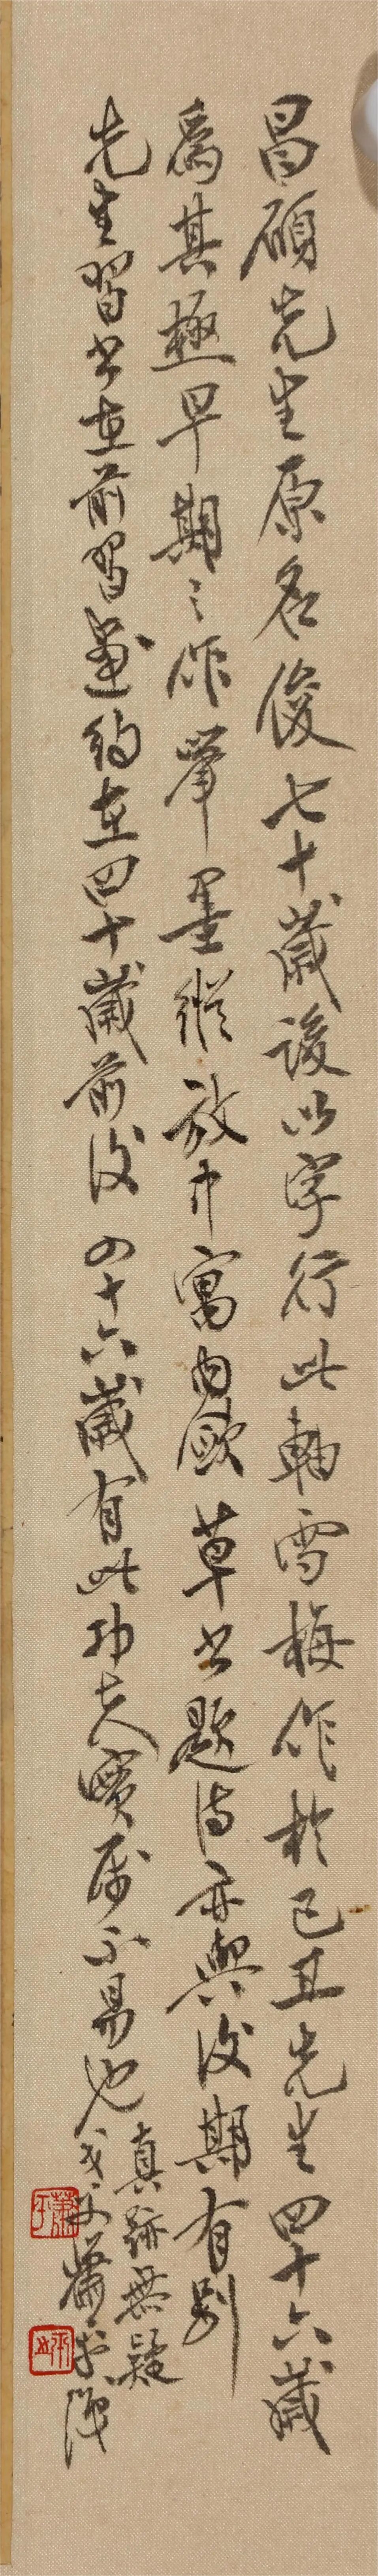 昌碩先生原名俊七十歲後以字行此軸雪梅作於己丑先生四十六歲
為其極早期之作筆墨縱放中寓內歛草书題詩亦與後期有別
先生習书在前習畫約在四十歲前後四十六歲有此功夫實屬不易也
真跡無疑
戈父蕭平識
蕭平